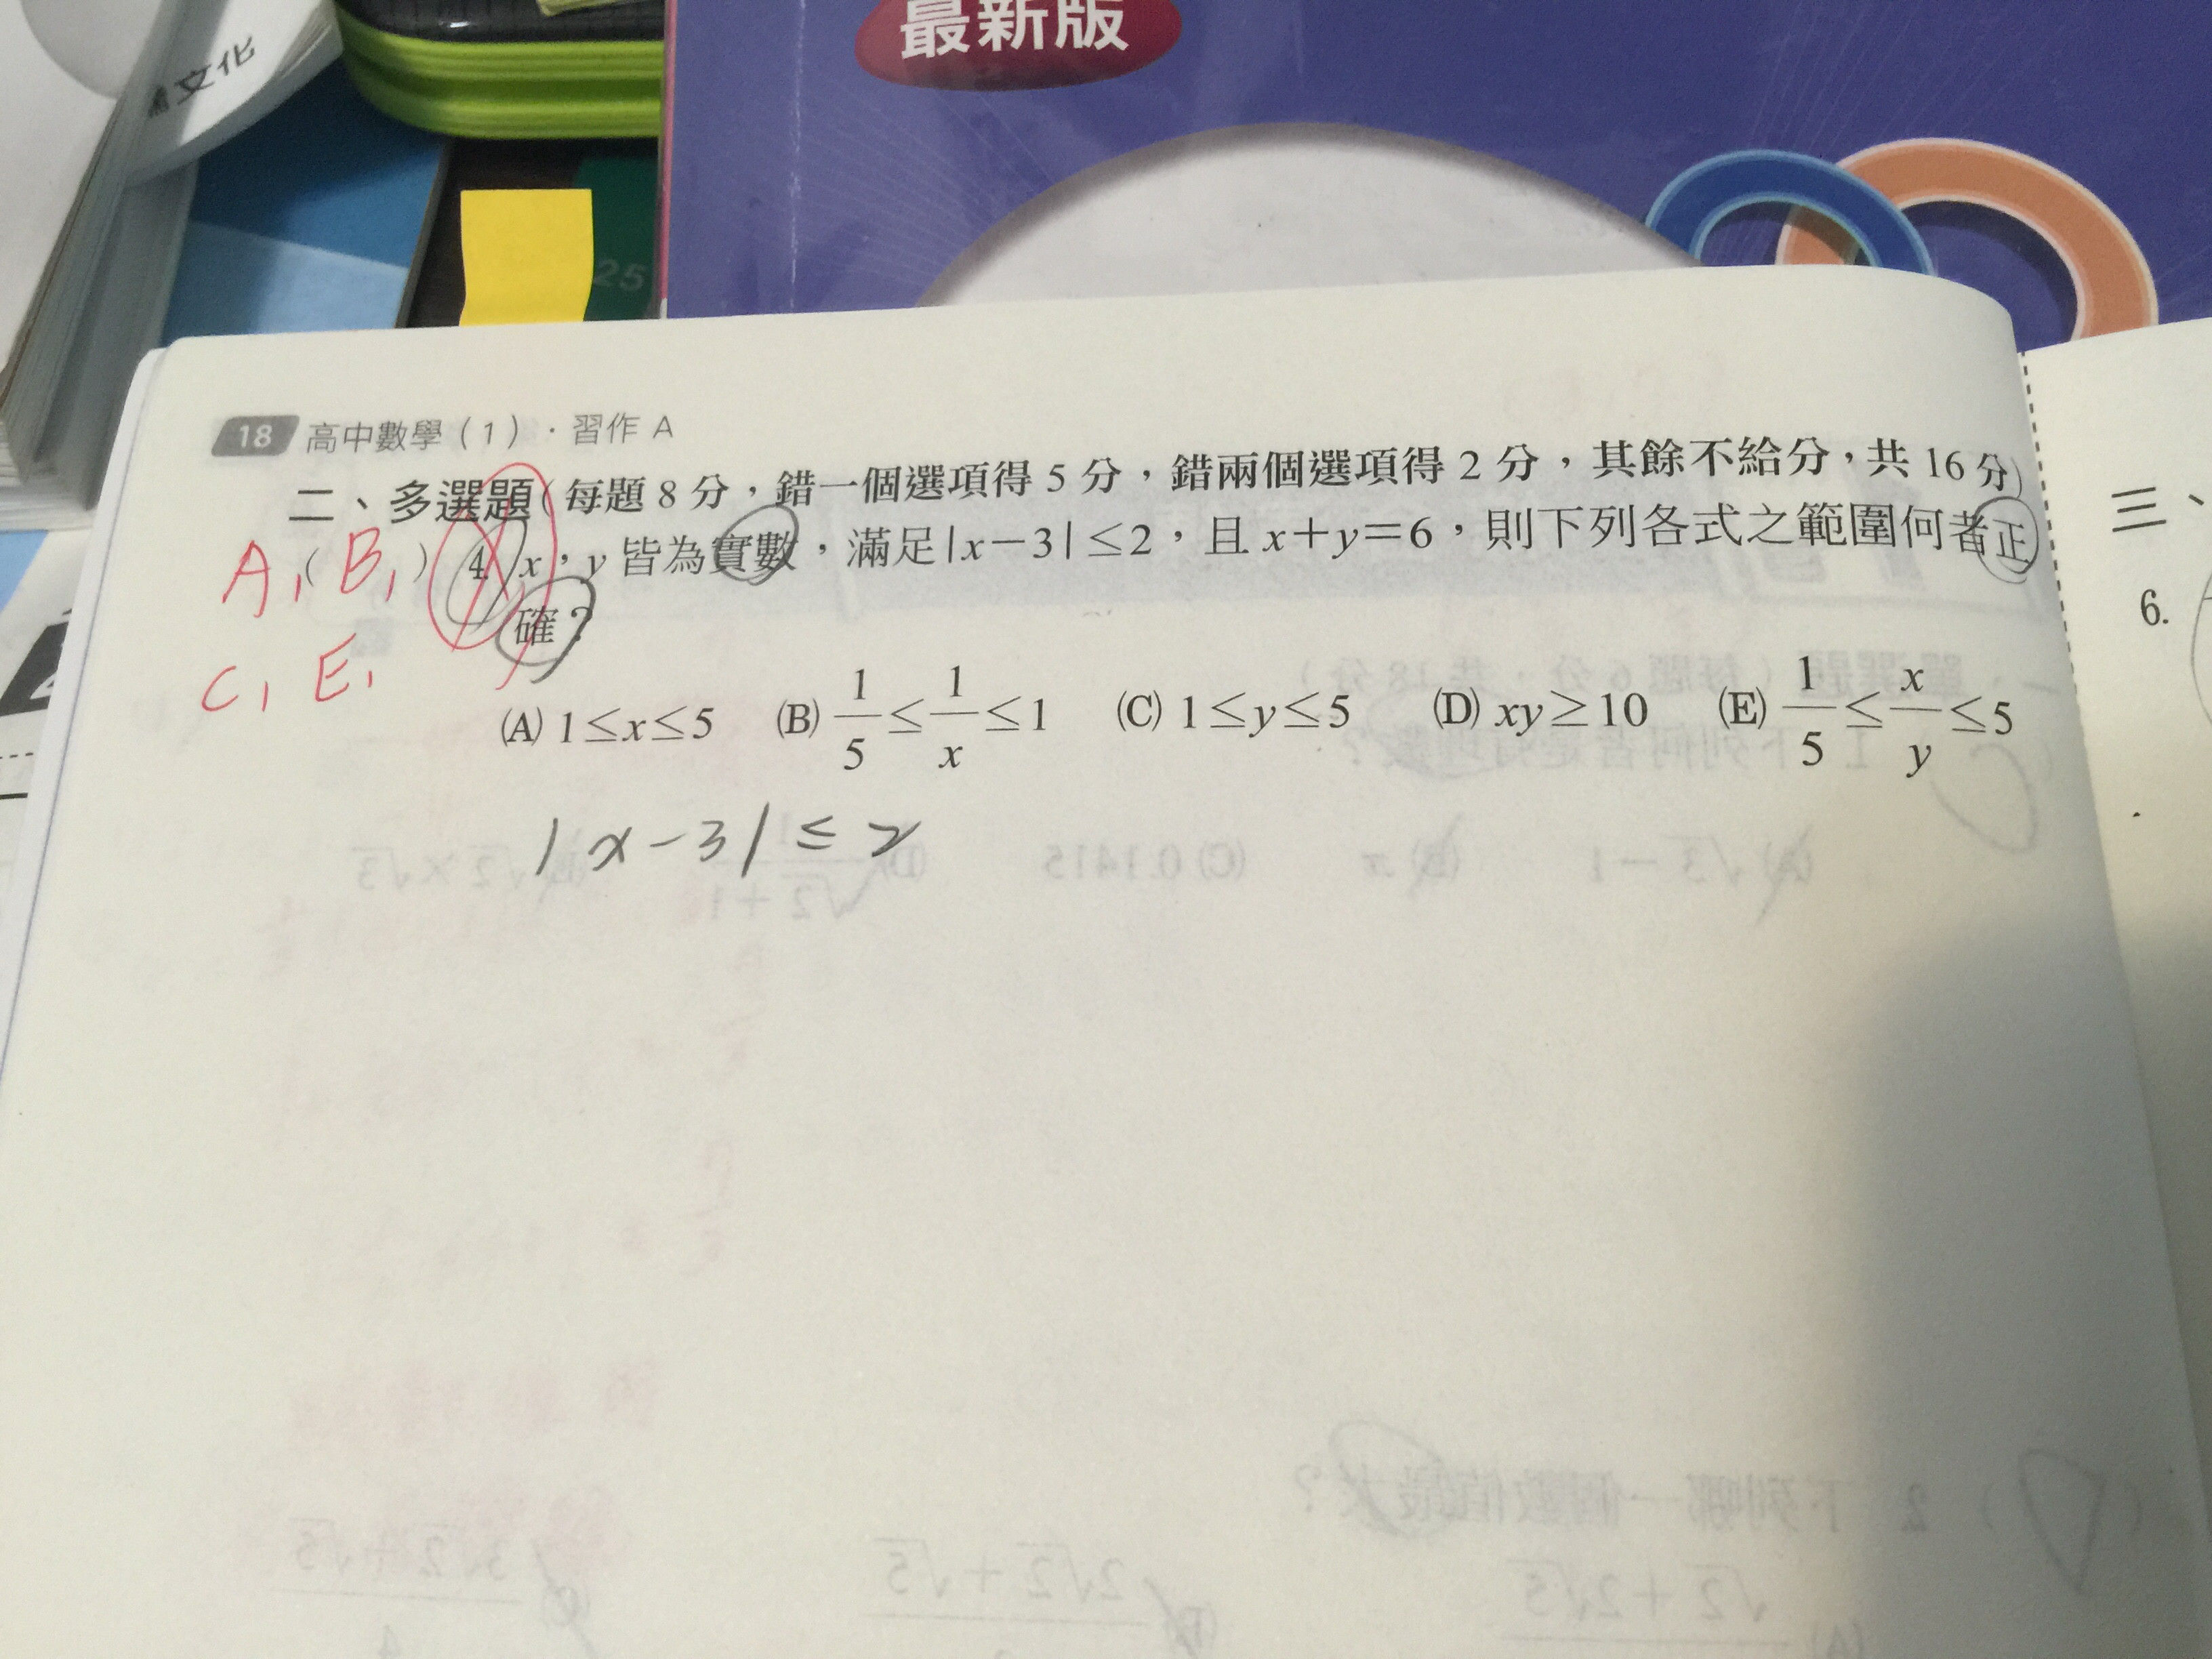 最新版
文化
25
18 高中數學(1)．習作 A
二、多選題(每題 8 分，錯一個選項得 5 分，錯兩個選項得 2 分，其餘不給分，共 16 分)
A, ( B, ) 4. x，y 皆為實數，滿足|x－3|≤2，且 x＋y＝6，則下列各式之範圍何者正
確？
C, E,
(A) 1≤x≤5 (B) 1/5≤1/x≤1 (C) 1≤y≤5 (D) xy≥10 (E) 1/5≤x/y≤5
|x-3|≤2
三、
6.